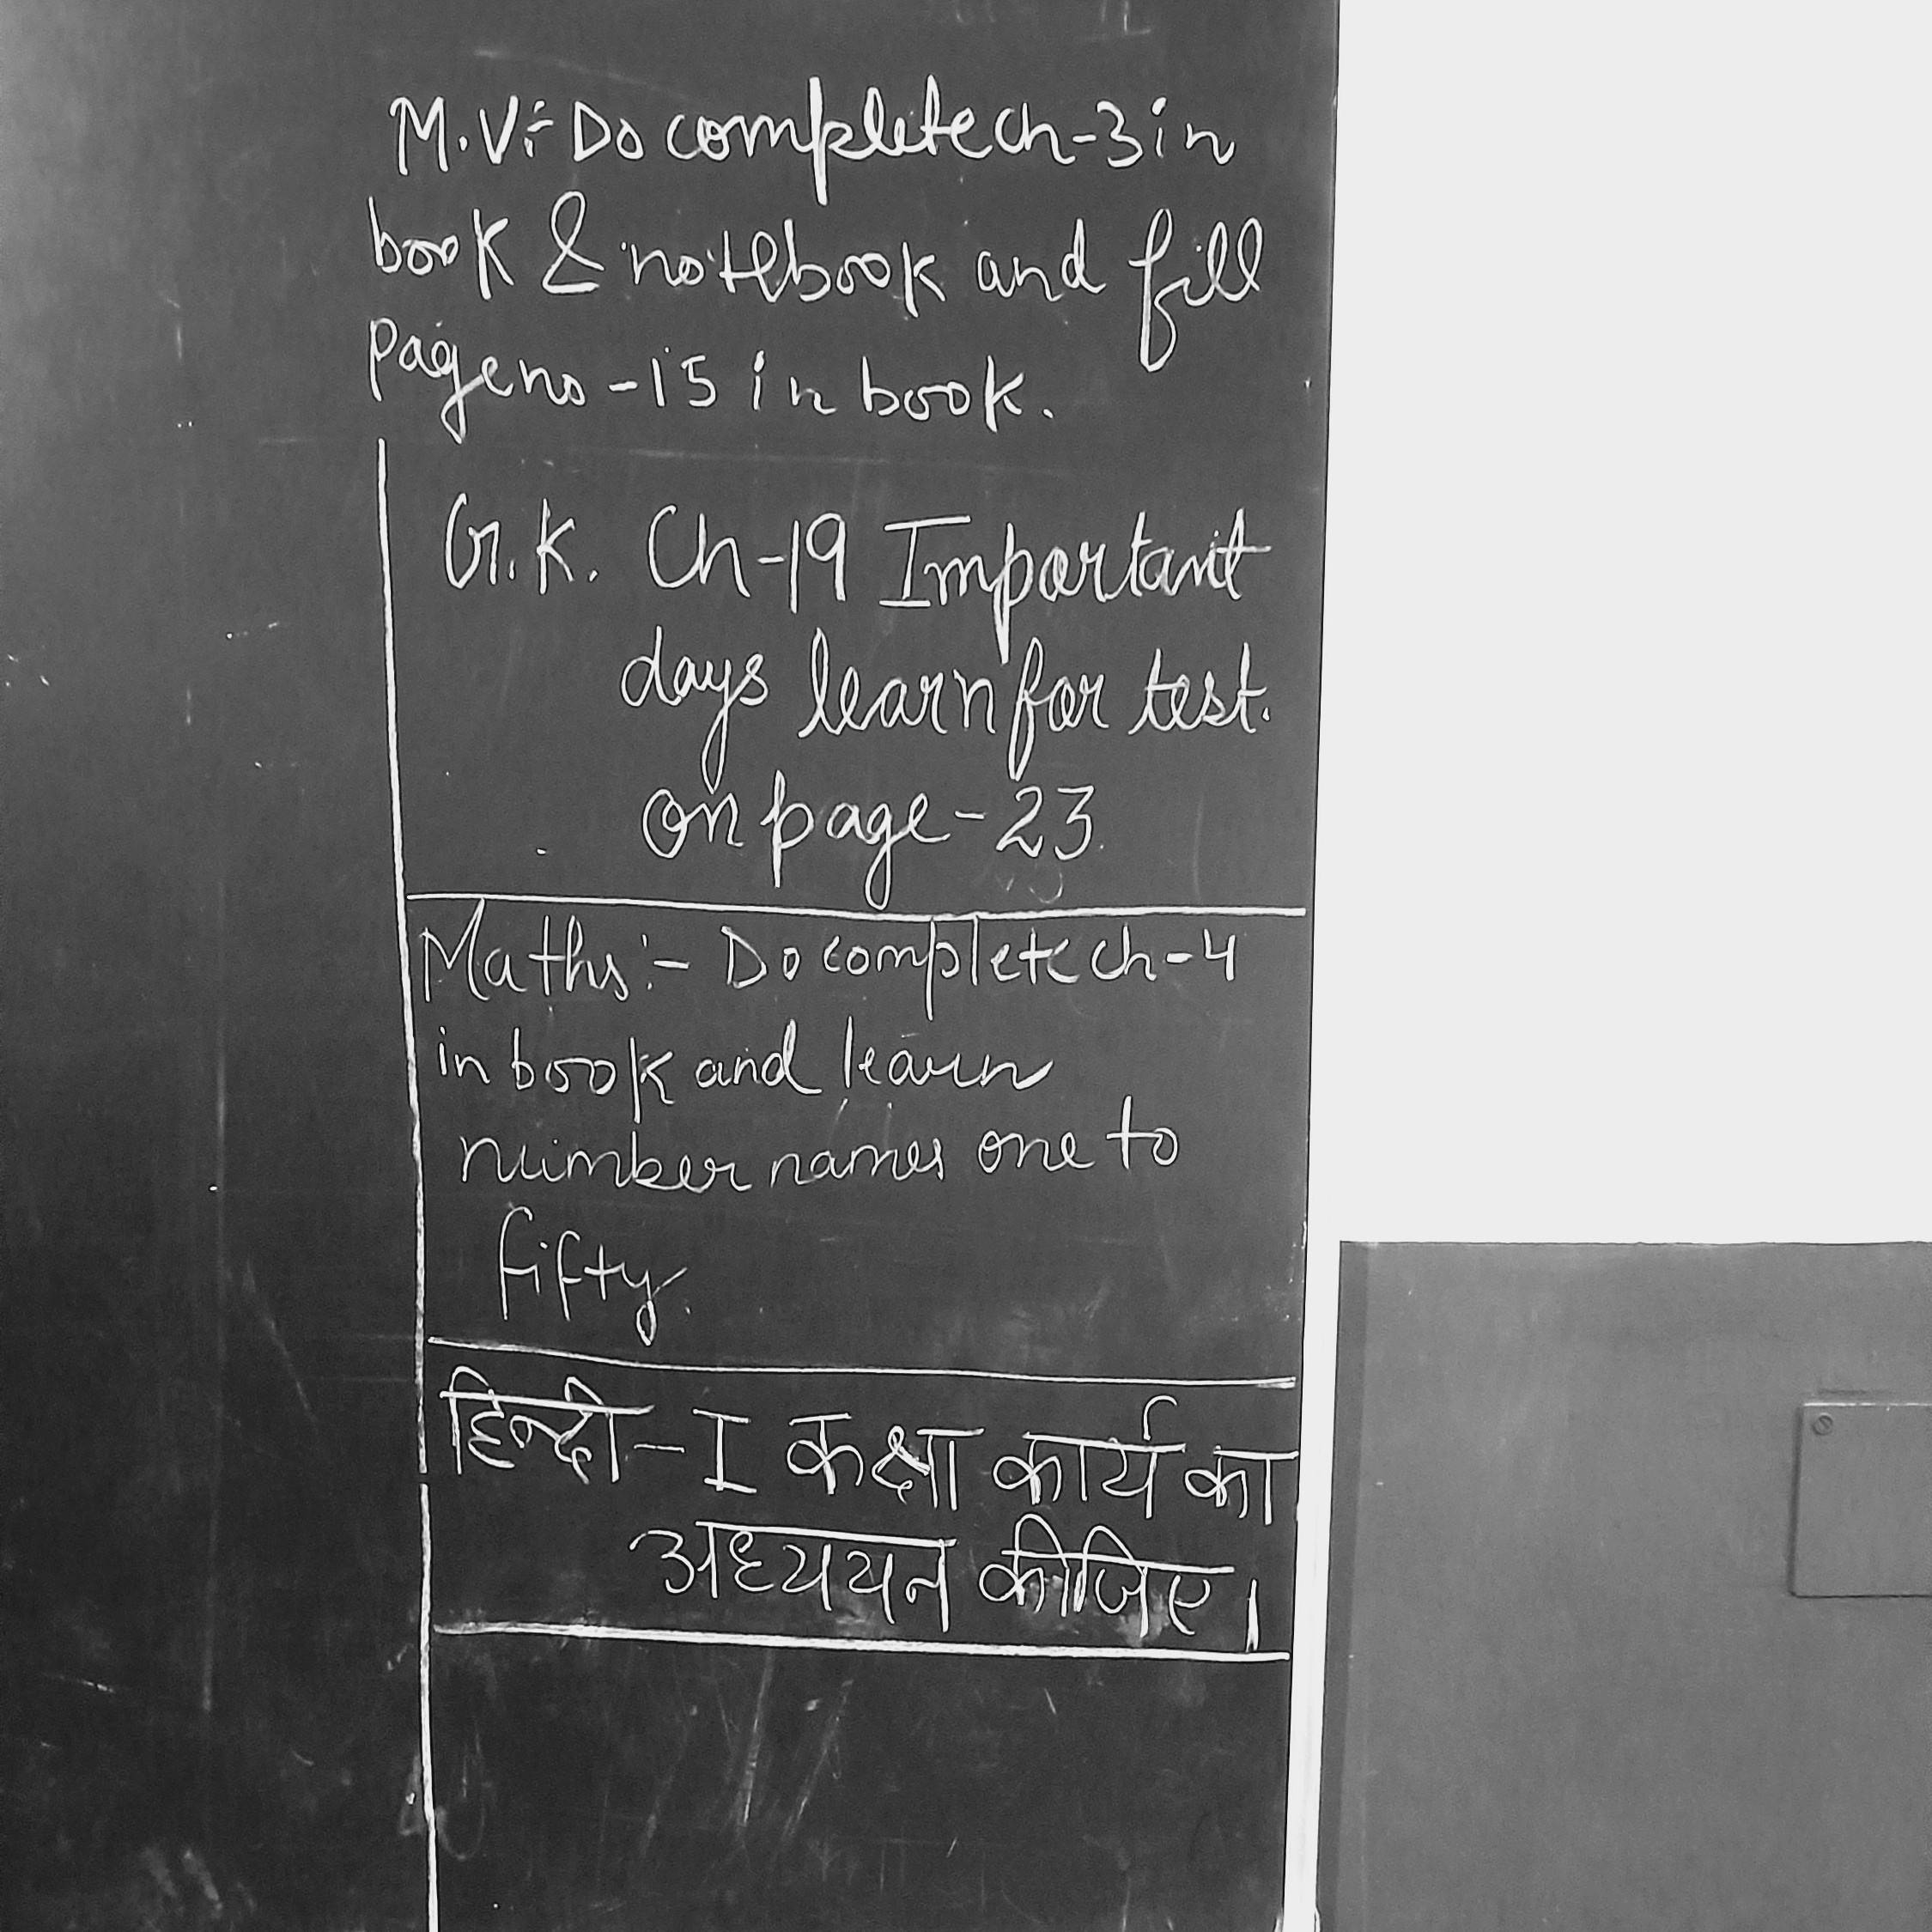 M.V:- Do complete ch-3 in
book & notebook and fill
page no - 15 in book.
G.K. Ch-19 Important
days learn for test.
on page - 23
Maths:- Do complete ch-4
in book and learn
number names one to
fifty.
हिन्दी - I कक्षा कार्य का
अध्ययन कीजिए।